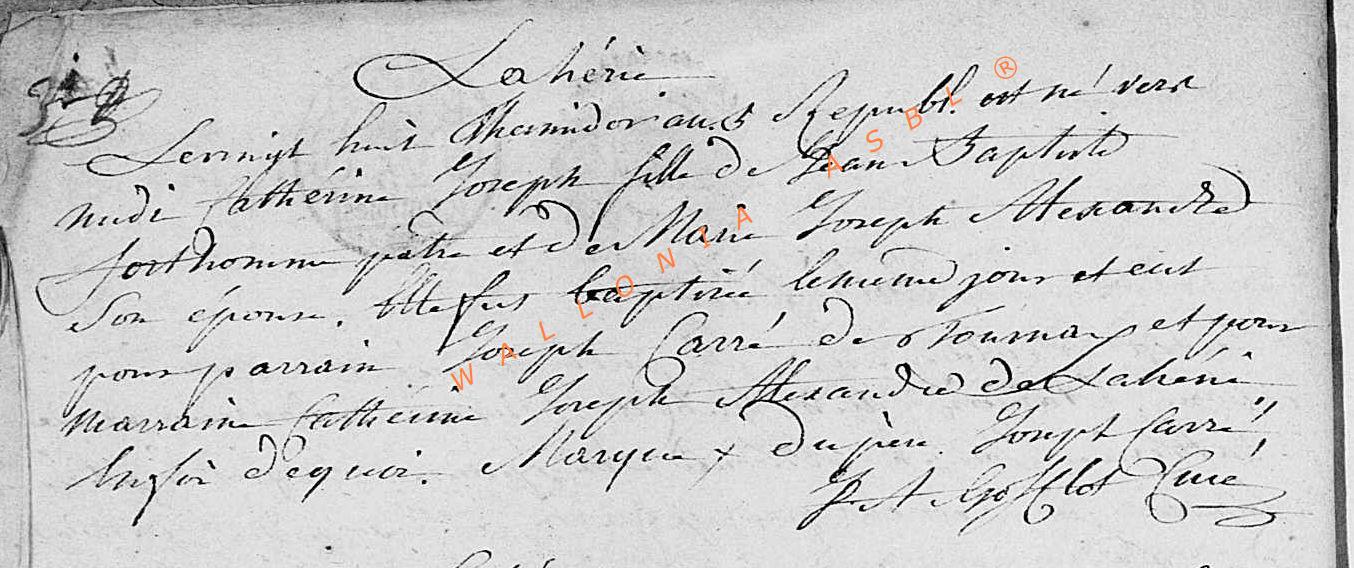 Lahérie
Le vingt huit Thermidor an. 5 Republ. est né vers
midi Cathérine Joseph fille de Jean Baptiste
forthomme pâtre et de Marie Joseph Alexandre
Son épouse. Elle fut baptisée le meme jour et eut
pour parrain Joseph Carré de Tournay et pour
marraine Cathérine Joseph Alexandre de Lahérie
En foi de quoi. Marque x du père. Joseph Carré,
Curé
WALLONIA ASBL ®